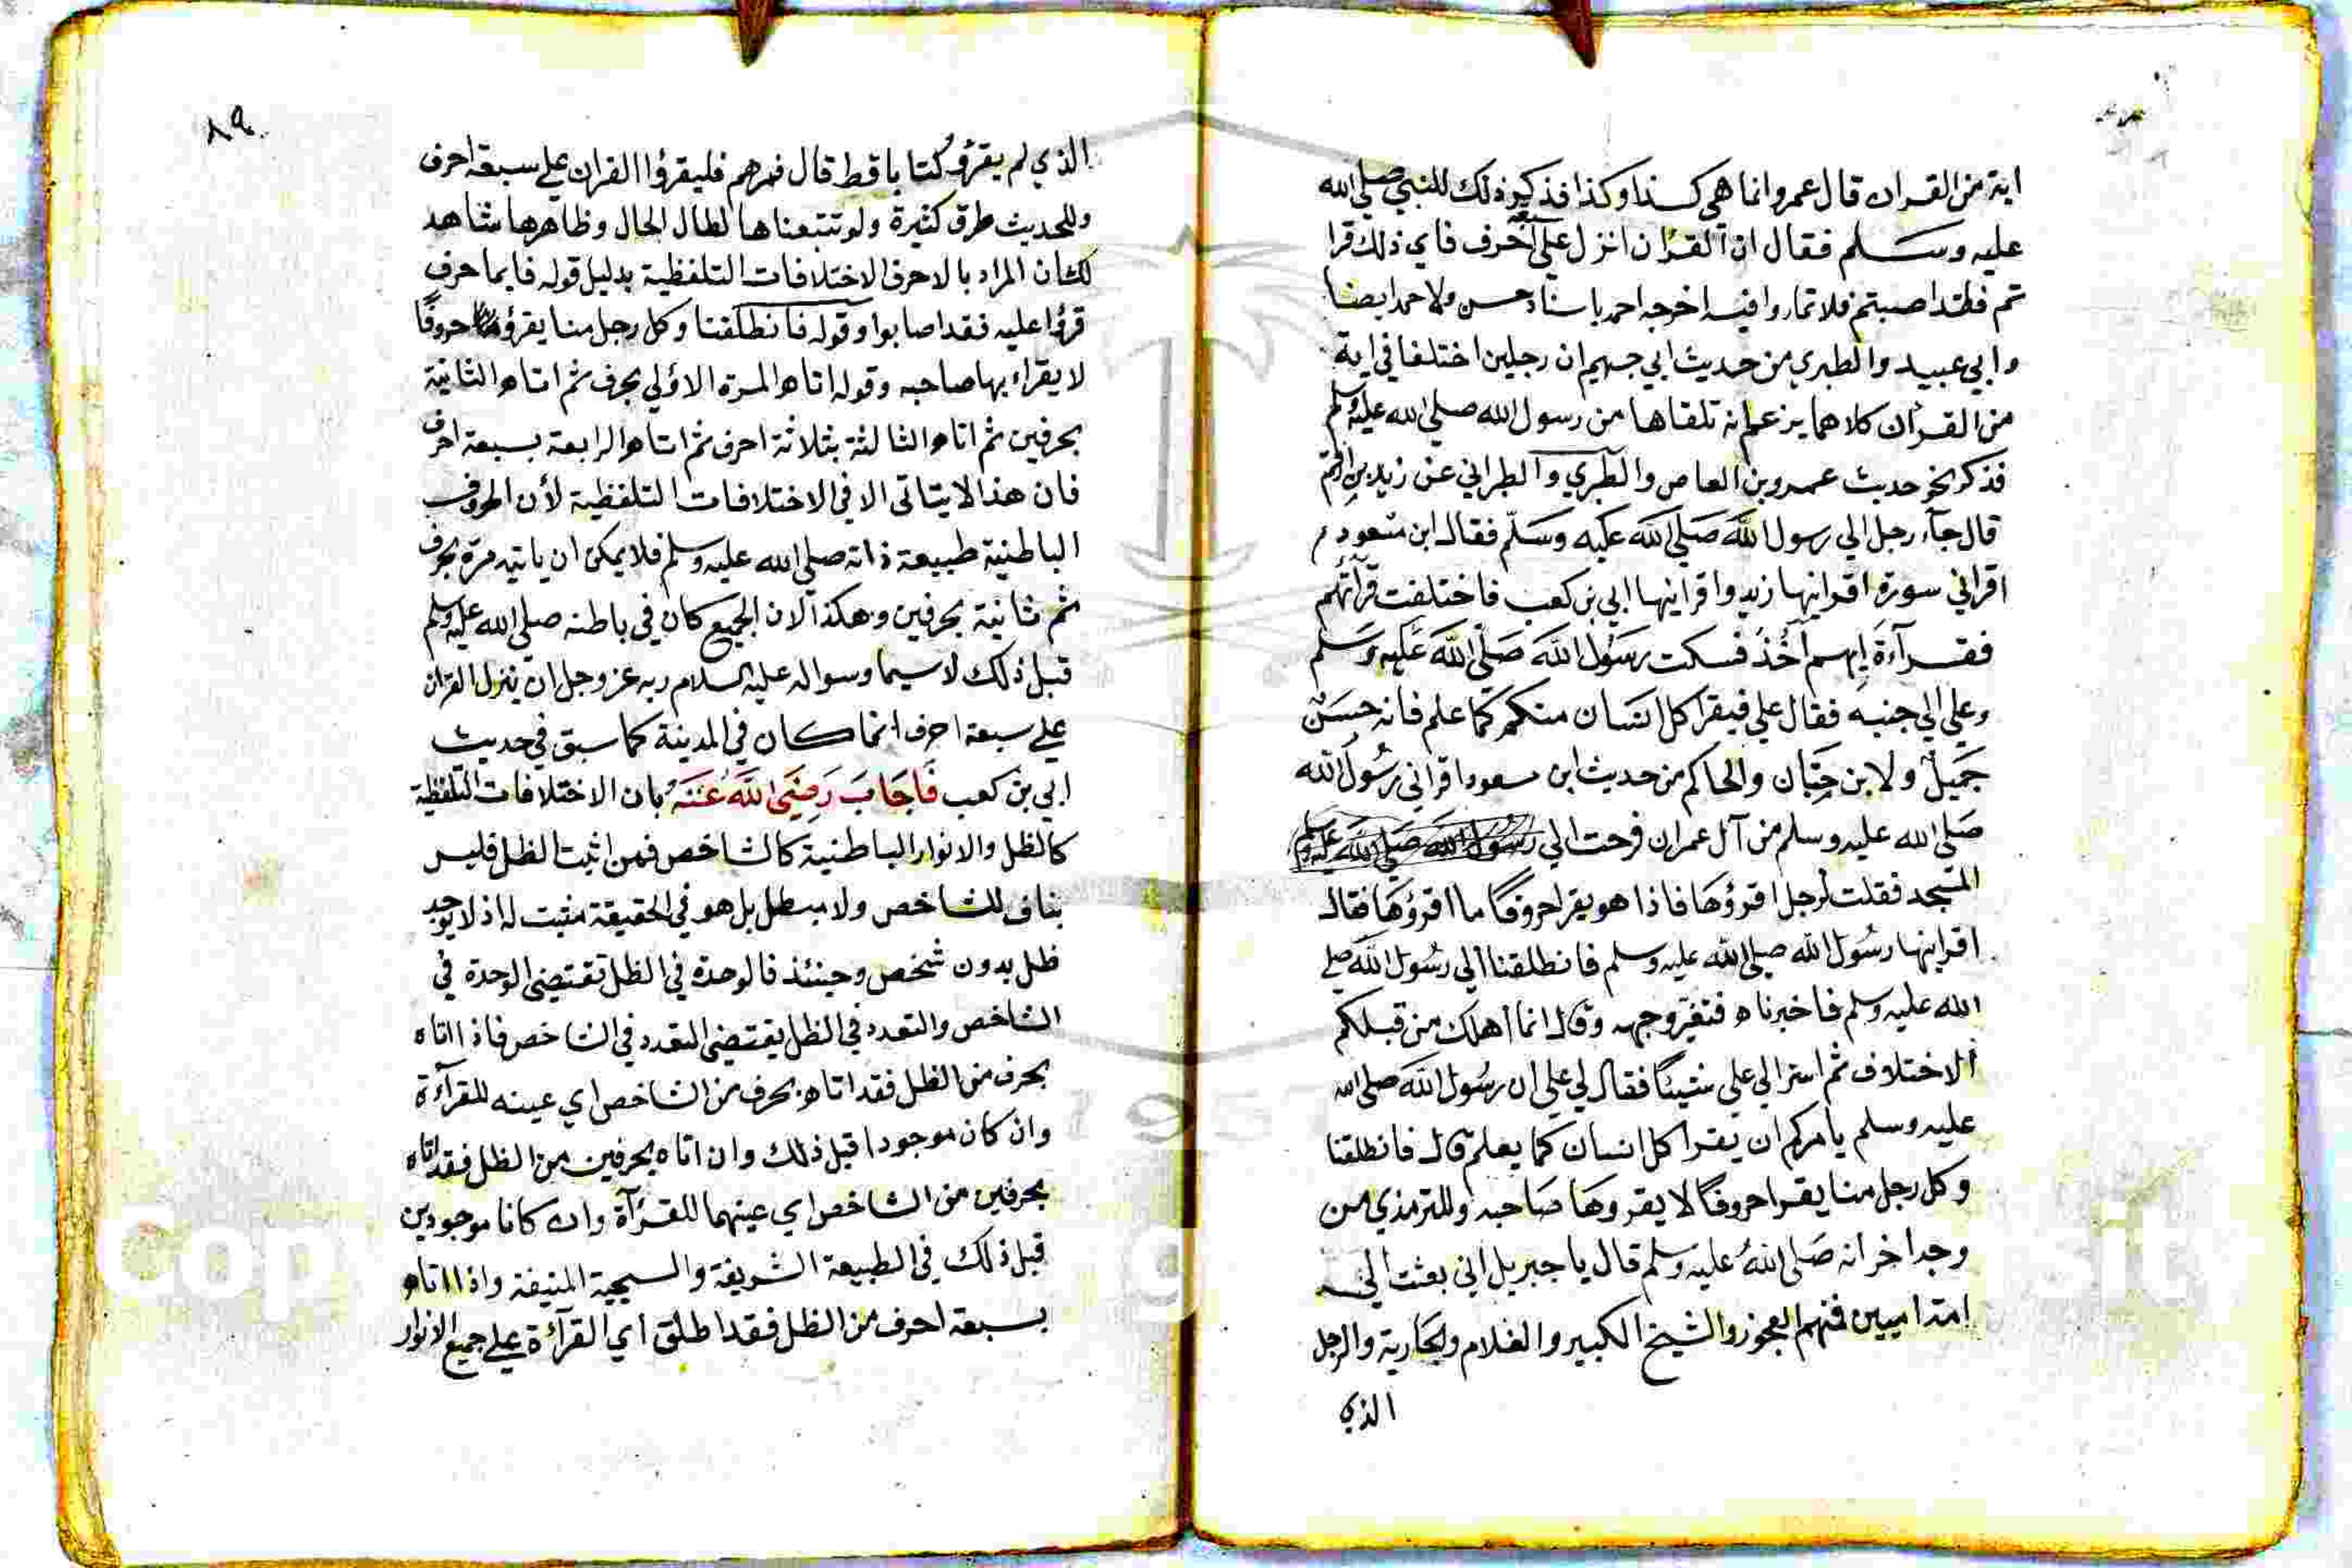 اية من القران قال عمرو انما هي كذا وكذا فذكر ذلك للنبي صلي الله
عليه وسلم فقال ان القرآن انزل علي سبعة احرف فاي ذلك قرا
تم فلقد اصبتم فلا تماروا فيه اخرجه احمد باسناد حسن ولاحمد ايضا
وابي عبيد والطبري من حديث ابي جهيم ان رجلين اختلفا في اية
من القران كلاهما يزعم انه تلقاها من رسول الله صلي الله عليه وسلم
فذكر نحو حديث عمرو بن العاص والطبري والطبراني عن زيد بن ارقم
قال جآء رجل الي رسول الله صَلي الله عليه وسَلم فقال ابن مسعود
اقراني سورة اقرانيها زيد واقرانيها ابي بن كعب فاختلفت قرآتهم
فقرآءة ايهم آخُذُ فسكت رسَول الله صَلي الله عَليه وسَلم
وعلي الي جنبه فقال علي فيقرا كل انسان منكم كما علم فانه حسَن
جَميل ولابن حِبّان والحاكم من حديث ابن مسعود اقراني رسُول الله
صَلي الله عليه وسلم من آل عمران فرحت الي رسول الله صلي الله عليه وسلم
المسجد فقلت لرجل اقرؤها فاذا هو يقرا حروفا ما اقرؤها فقال
اقرانيها رسُول الله صلي الله عليه وسلم فانطلقنا الي رسُول الله صلي
الله عليه وسلم فاخبرناه فتغير وجهه وقال انما اهلك من قبلكم
الاختلاف ثم اسر الي علي شيئا فقال لي علي ان رسُول الله صلي الله
عليه وسلم يامركم ان يقرا كل انسان كما يعلم قال فانطلقنا
وكل رجل منا يقرا حروفا لا يقروها صَاحبه وللترمذي من
وجد اخر انه صَلي الله عليه وسلم قال يا جبريل اني بعثت الي
امة اميين فمنهم العجوز والشيخ الكبير والغلام والجارية والرجل
الذي
٨٩
الذي لم يقرؤ كتابا قط قال فمرهم فليقرؤا القران علي سبعة احرف
وللحديث طرق كثيرة ولو تتبعناها لطال الحال وظاهرها شاهد
لكان المراد بالاحرف الاختلافات التلفظية بدليل قوله فايما حرف
قرؤا عليه فقد اصابوا وقوله فانطلقنا وكل رجل منا يقرؤ حروفًا
لا يقراء بها صاحبه وقوله اتاه المرة الاولي بحرف ثم اتاه الثانية
بحرفين ثم اتاه الثالثة بثلاثة احرف ثم اتاه الرابعة بسبعة احرف
فان هذا لا يتاتى الا في الاختلافات التلفظية لأن الحروف
الباطنية طبيعة ذاته صلي الله عليه وسلم فلا يمكن ان ياتيه مرة بحرف
ثم ثانية بحرفين وهكذا لان الجميع كان في باطنه صلي الله عليه وسلم
قبل ذلك لا سيما وسواله عليه السلام ربه عز وجل ان ينزل القران
علي سبعة احرف انما كان في المدينة كما سبق في حديث
ابي بن كعب فَاجَابَ رَضِيَ الله عَنهُ بان الاختلافات التلفظية
كالظل والانوار الباطنية كالشاخص فمن اثبت الظل فليس
بناف للشاخص ولا مبطل بل هو في الحقيقة مثبت له اذ لا يوجد
ظل بدون شخص وحينئذ فالوحدة في الظل تقتضي الوحدة في
الشاخص والتعدد في الظل يقتضي التعدد في الشاخص فاذا اتاه
بحرف من الظل فقد اتاه بحرف من الشاخص اي عينه للقرآءة
وان كان موجودا قبل ذلك وان اتاه بحرفين من الظل فقد اتاه
بحرفين من الشاخص اي عينهما للقرآة وان كانا موجودين
قبل ذلك في الطبيعة الشريفة والسجية المنيفة واذا اتاه
بسبعة احرف من الظل فقد اطلق اي القرآءة علي جميع الانوار
1957